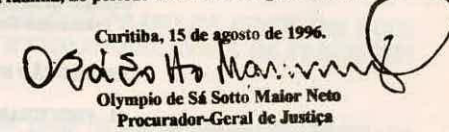 Curitiba, 15 de agosto de 1996.
Olympio de Sá Sotto Maior Neto
Procurador-Geral de Justiça